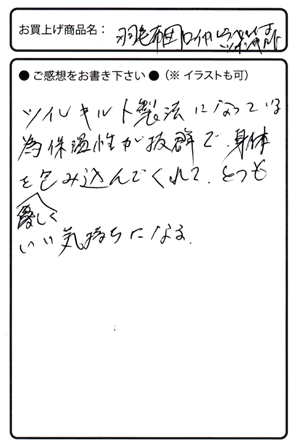 お買上げ商品名： 羽毛布団ロイヤル
● ご感想をお書き下さい ●（※ イラストも可）
ツインキルト製法になっている
為保温性が抜群で、身体
を包み込んでくれて、とっても
優しく
いい気持ちになる。